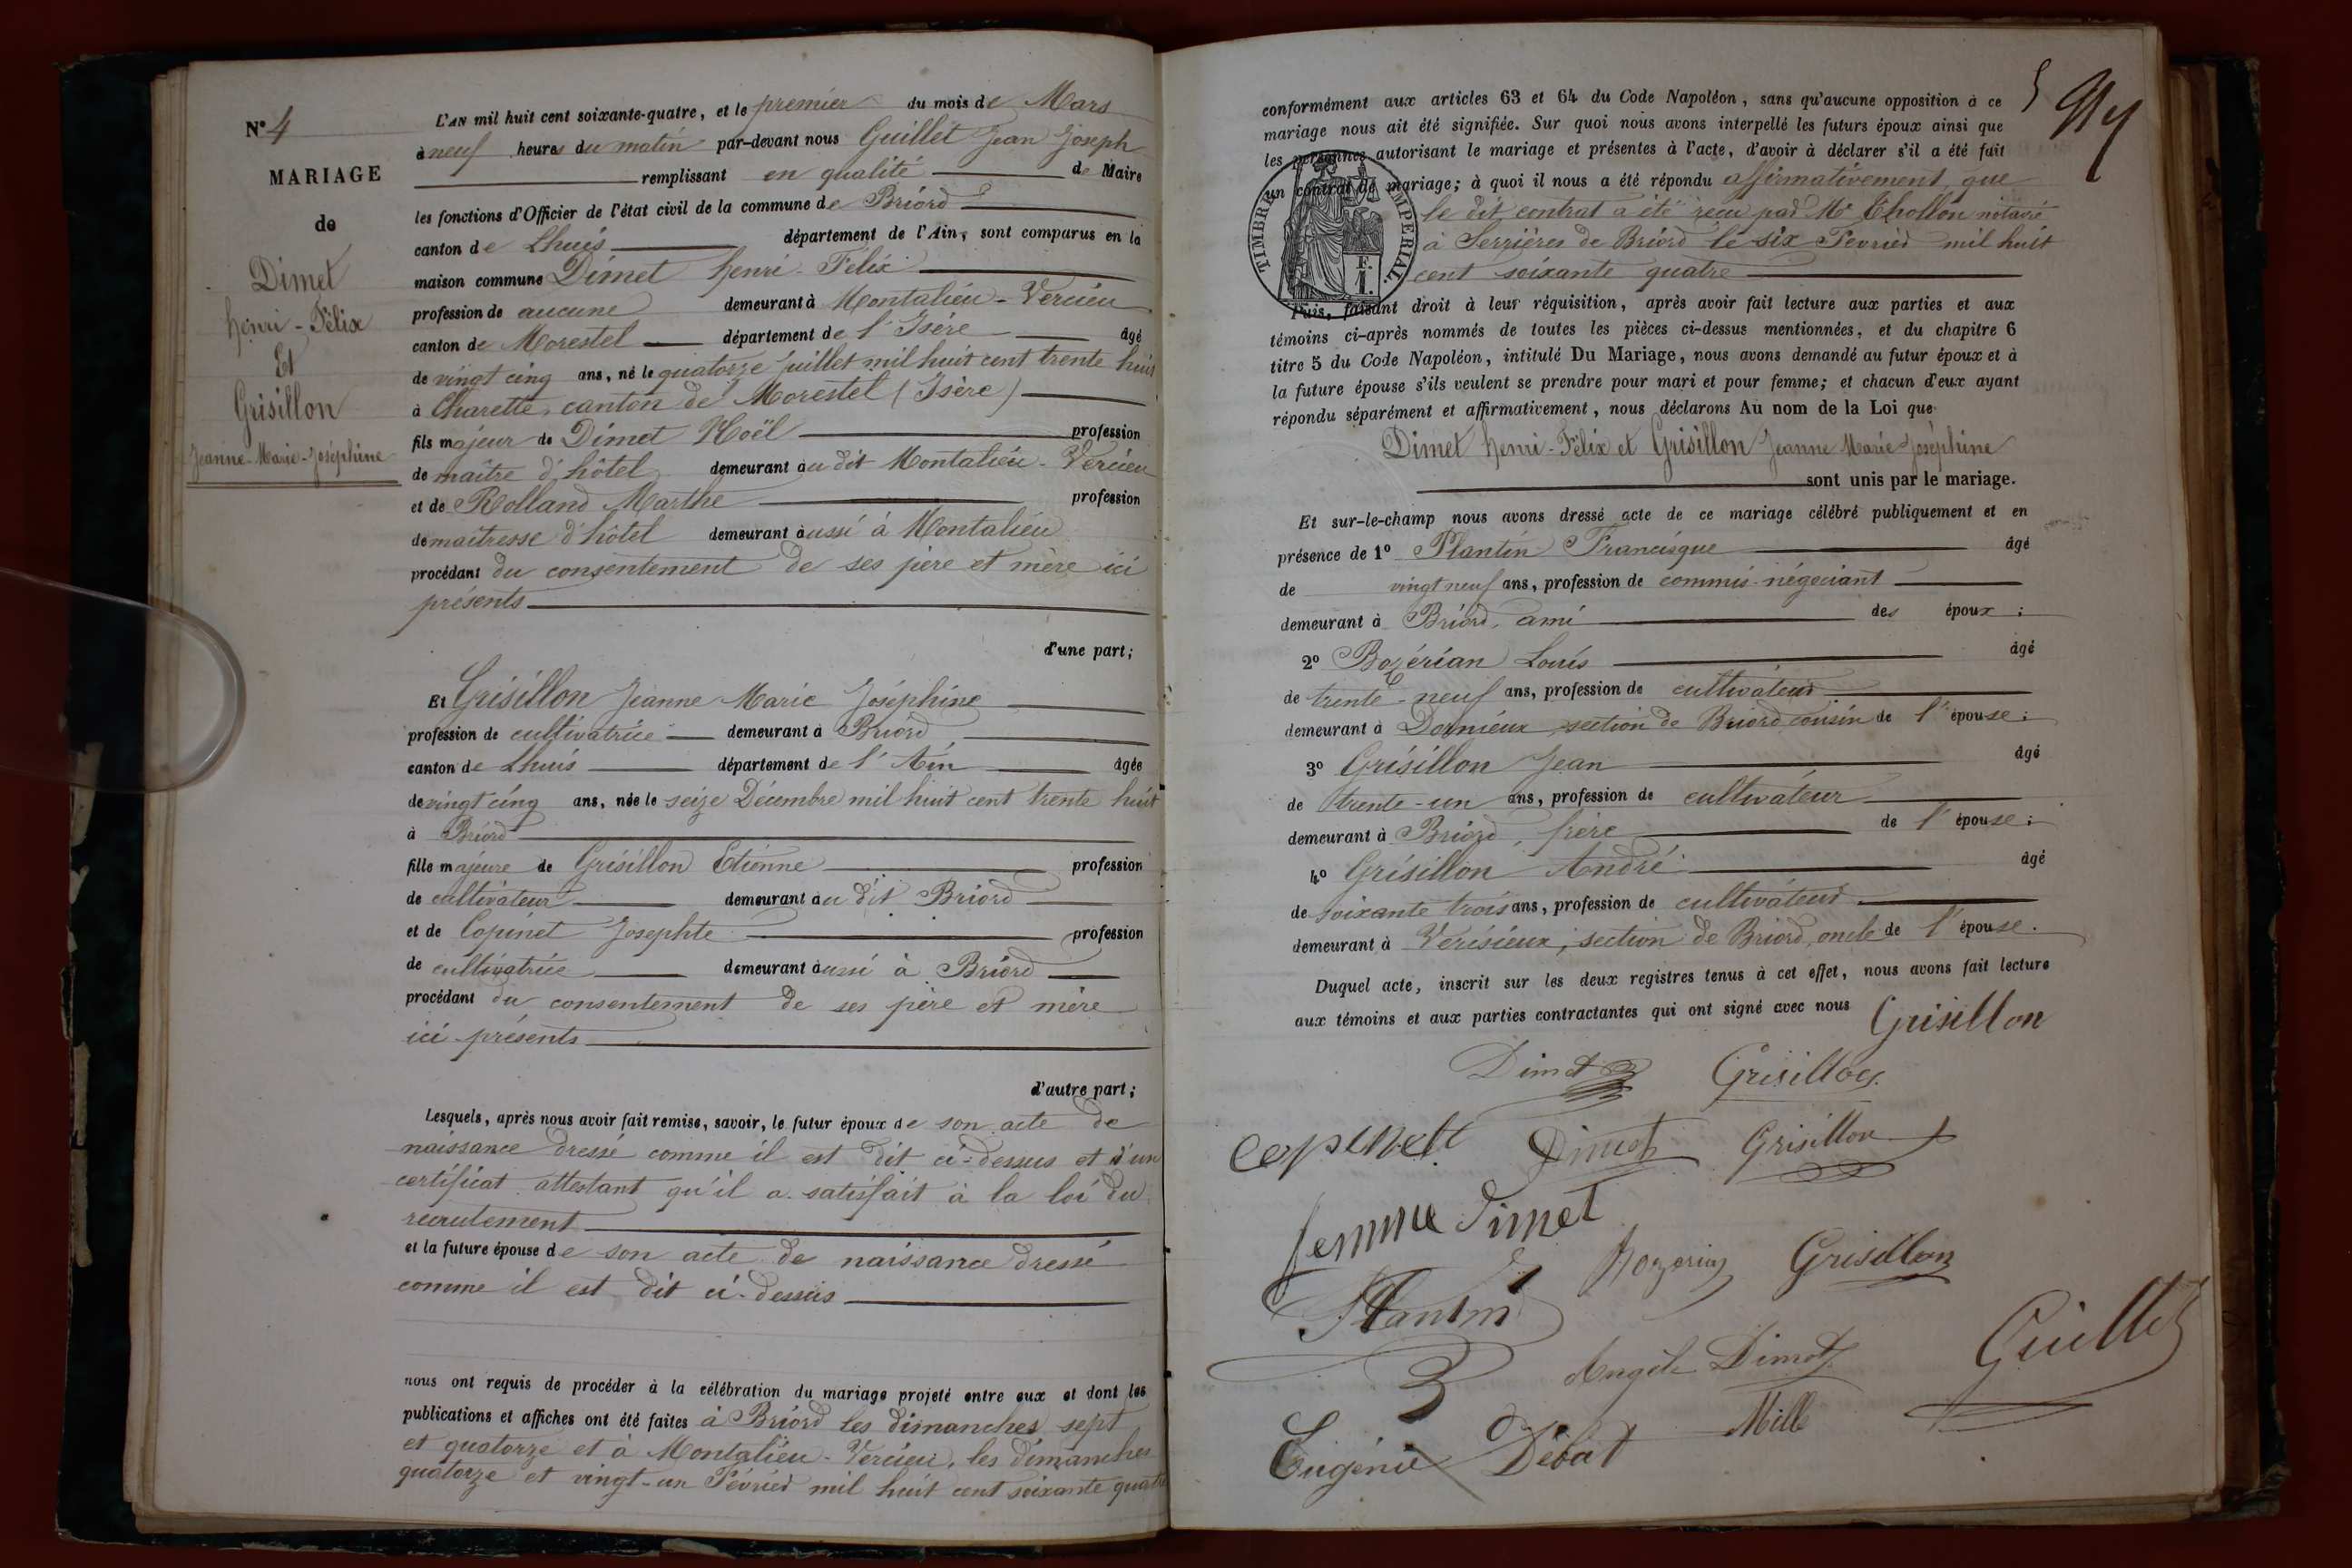 N° 4
MARIAGE
de
Dimet
henri-Félix
Et
Grisillon
Jeanne-Marie-Joséphine
L'AN mil huit cent soixante-quatre, et le premier du mois de Mars
à neuf heures du matin par-devant nous Guillet Jean Joseph
remplissant en qualité de Maire
les fonctions d'Officier de l'état civil de la commune de Briord
canton de Lhuis département de l'Ain, sont comparus en la
maison commune Dimet henri-Félix
profession de aucune demeurant à Montalieu-Vercieu
canton de Morestel département de l'Isère âgé
de vingt cinq ans, né le quatorze juillet mil huit cent trente huit
à Charette, canton de Morestel (Isère)
fils majeur de Dimet Noël profession
de maître d'hôtel demeurant au dit Montalieu-Vercieu
et de Rolland Marthe profession
de maitresse d'hôtel demeurant aussi à Montalieu
procédant du consentement de ses père et mère ici
présents
d'une part;
Et Grisillon Jeanne Marie Joséphine
profession de cultivatrice demeurant à Briord
canton de Lhuis département de l'Ain âgée
de vingt cinq ans, née le seize Décembre mil huit cent trente huit
à Briord
fille majeure de Grisillon Etienne profession
de cultivateur demeurant au dit Briord
et de Copinet Josephte profession
de cultivatrice demeurant aussi à Briord
procédant du consentement de ses père et mère
ici présents
d'autre part;
Lesquels, après nous avoir fait remise, savoir, le futur époux de son acte de
naissance dressé comme il est dit ci-dessus et d'un
certificat attestant qu'il a satisfait à la loi du
recrutement
et la future épouse de son acte de naissance dressé
comme il est dit ci-dessus
nous ont requis de procéder à la célébration du mariage projeté entre eux et dont les
publications et affiches ont été faites à Briord les dimanches sept
et quatorze et à Montalieu-Vercieu, les dimanches
quatorze et vingt-un Février mil huit cent soixante quatre
conformément aux articles 63 et 64 du Code Napoléon, sans qu'aucune opposition à ce
mariage nous ait été signifiée. Sur quoi nous avons interpellé les futurs époux ainsi que
les personnes autorisant le mariage et présentes à l'acte, d'avoir à déclarer s'il a été fait
un contrat de mariage; à quoi il nous a été répondu affirmativement, que
le dit contrat a été reçu par Me Chollon notaire
à Serrières de Briord le six Février mil huit
cent soixante quatre
TIMBRE IMPERIAL
F.
1.
Puis, faisant droit à leur réquisition, après avoir fait lecture aux parties et aux
témoins ci-après nommés de toutes les pièces ci-dessus mentionnées, et du chapitre 6
titre 5 du Code Napoléon, intitulé Du Mariage, nous avons demandé au futur époux et à
la future épouse s'ils veulent se prendre pour mari et pour femme; et chacun d'eux ayant
répondu séparément et affirmativement, nous déclarons Au nom de la Loi que
Dimet henri-Félix et Grisillon Jeanne Marie Joséphine
sont unis par le mariage.
Et sur-le-champ nous avons dressé acte de ce mariage célébré publiquement et en
présence de 1° Plantin Francisque âgé
de vingt neuf ans, profession de commis-négociant
demeurant à Briord, ami des époux;
2° Bozérian Louis âgé
de trente-neuf ans, profession de cultivateur
demeurant à Dornieux section de Briord cousin de l'épouse;
3° Grisillon Jean âgé
de trente-un ans, profession de cultivateur
demeurant à Briord, frère de l'épouse;
4° Grisillon André âgé
de soixante trois ans, profession de cultivateur
demeurant à Verisieux, section de Briord, oncle de l'épouse.
Duquel acte, inscrit sur les deux registres tenus à cet effet, nous avons fait lecture
aux témoins et aux parties contractantes qui ont signé avec nous
Grisillon
Dimet Grisillon
copinett Dimet Grisillon
femme Dimet
Bozerian Grisillon
Plantin
Angèle Dimet Guillet
Eugénie Débat Mille